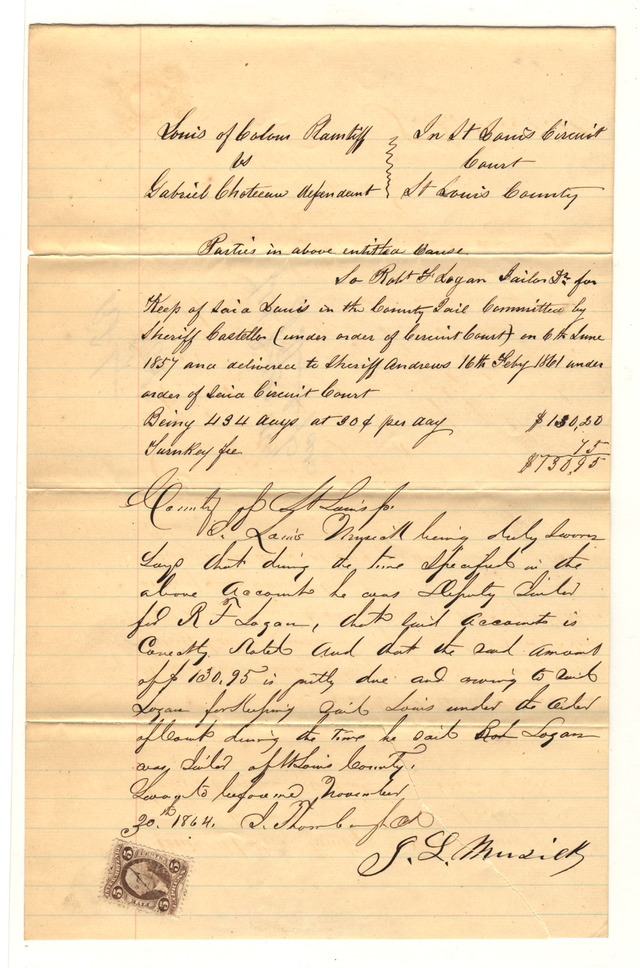 Louis of Colour Plaintiff
vs
Gabriel Choteau defendant
In St Louis Circuit
Court
St Louis County
Parties in above entitled Cause
To Robt F Logan Jailor Dr for
Keep of said Louis in the County Jail Committed by
Sheriff Castello (under order of Circuit Court) on 6th June
1857 and delivered to Sheriff Andrews 16th Feby 1861 under
order of said Circuit Court
Being 434 days at 30¢ per day $130,20
Turnkey fee 75
$130,95
County of St Louis ss.
J. Louis Musick being duly sworn
Says that during the time Specified in the
above Account he was Deputy Jailor
for R F Logan, that said Account is
Correctly Stated And that the said Amount
of $130,95 is justly due and owing to said
Logan for Keeping said Louis under the Order
of Court during the time he said Logan
was Jailor of St Louis County.
Sworn to before me November
30th 1864. Clk
J. L. Musick
5 5
5 5